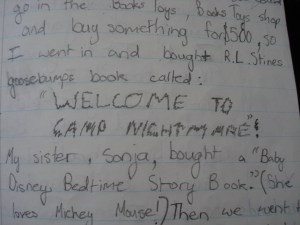 go in the Books Toys, Books Toys shop
and buy something for $5.00, so
I went in and bought R.L. Stines
goosebumps book called:
"WELCOME TO
CAMP NIGHTMARE"!
My sister, Sonja, bought a "Baby
Disney Bedtime Story Book." (She
loves Mickey Mouse!) Then we went